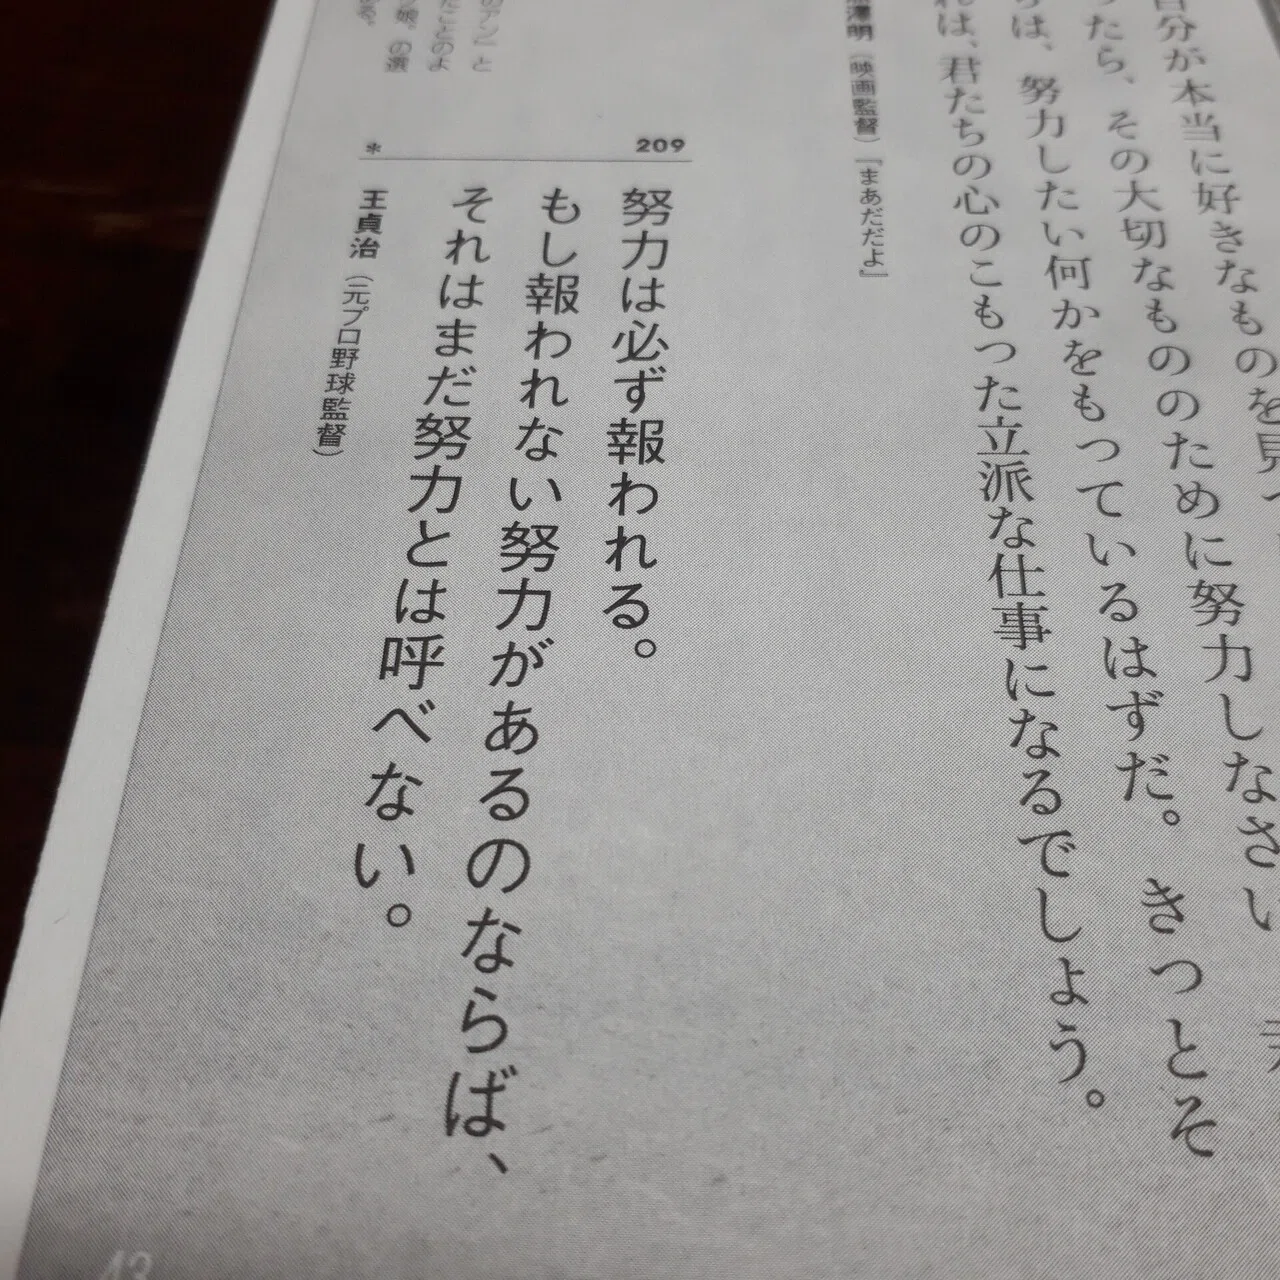 自分が本当に好きなものを見つ
ったら、その大切なもののために努力しなさい
は、努力したい何かをもっているはずだ。きっとそ
れは、君たちの心のこもった立派な仕事になるでしょう。
澤明(映画監督)『まあだだよ』
209
努力は必ず報われる。
もし報われない努力があるのならば、
それはまだ努力とは呼べない。
*
王貞治(元プロ野球監督)
のアン」と
たことのよ
娘。の選
ある。
43